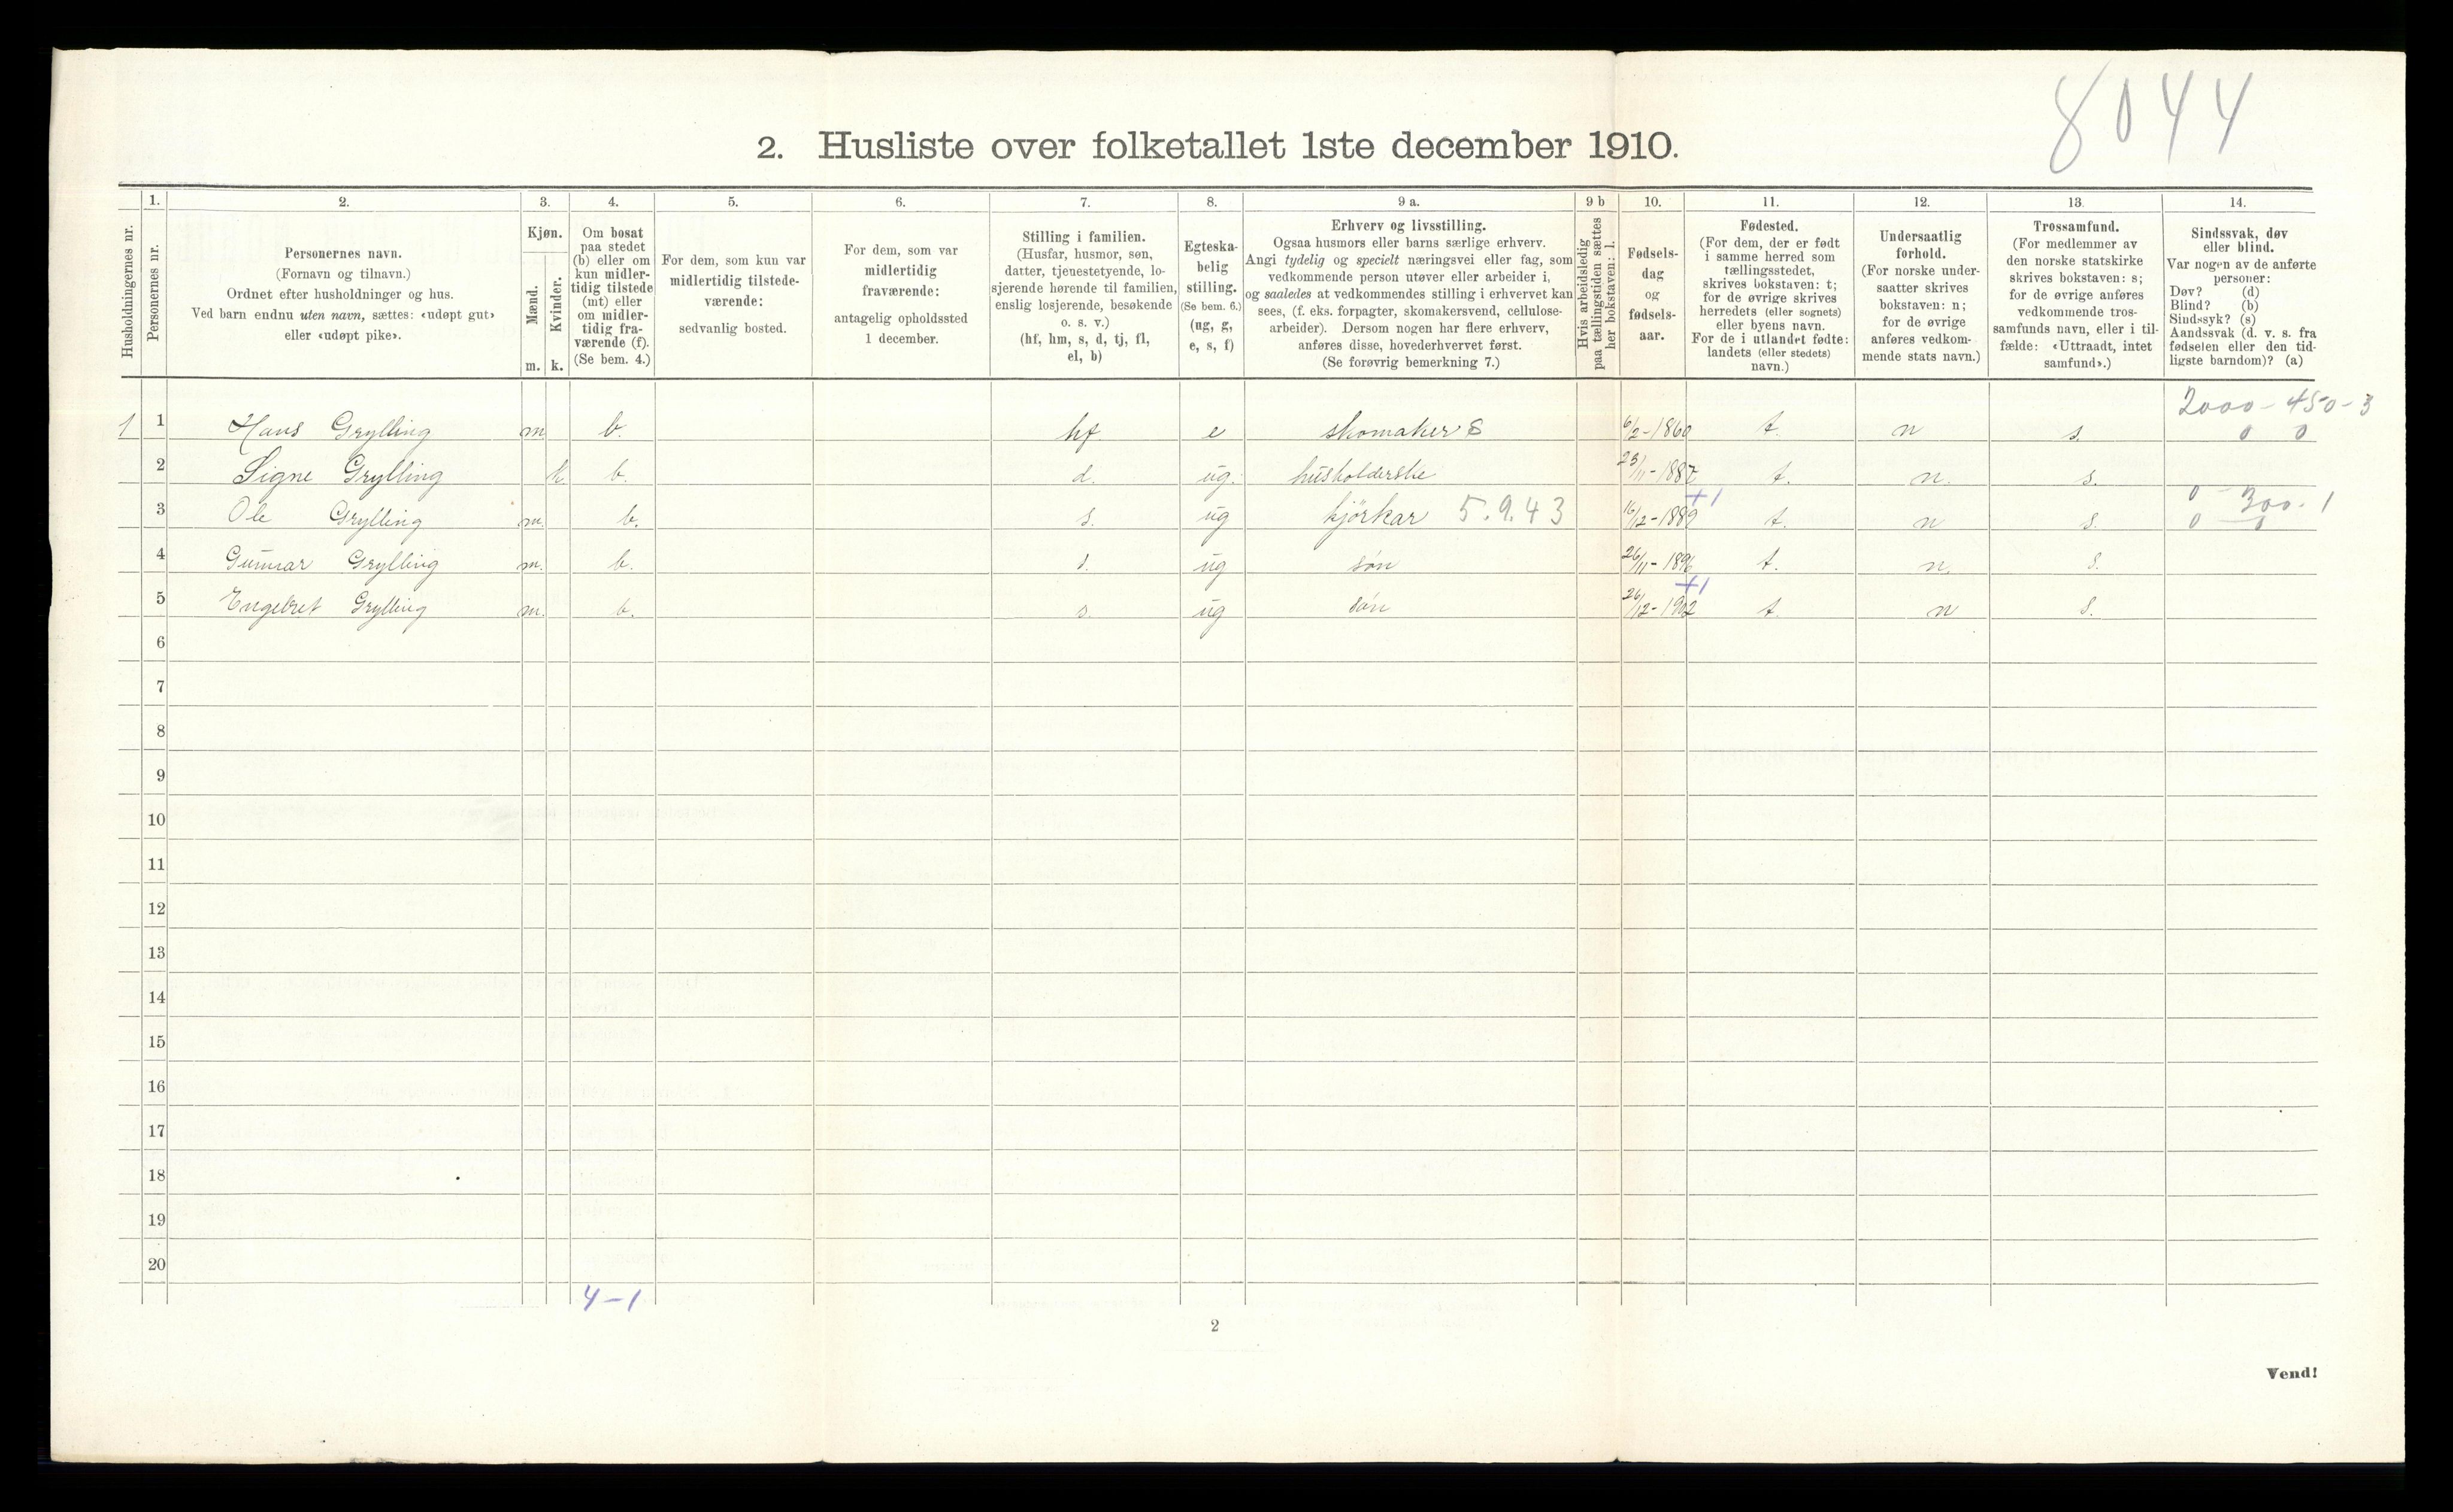 8044
2. Husliste over folketallet 1ste december 1910.
1. 2. 3. 4. 5. 6. 7. 8. 9 a. 9 b 10. 11. 12. 13. 14.
Husholdningernes nr.
Personernes nr.
Personernes navn.
(Fornavn og tilnavn.)
Ordnet efter husholdninger og hus.
Ved barn endnu uten navn, sættes: «udøpt gut»
eller «udøpt pike».
Kjøn.
Mænd.
m.
Kvinder.
k.
Om bosat
paa stedet
(b) eller om
kun midler-
tidig tilstede
(mt) eller
om midler-
tidig fra-
værende (f).
(Se bem. 4.)
For dem, som kun var
midlertidig tilstede-
værende:
sedvanlig bosted.
For dem, som var
midlertidig
fraværende:
antagelig opholdssted
1 december.
Stilling i familien.
(Husfar, husmor, søn,
datter, tjenestetyende, lo-
sjerende hørende til familien,
enslig losjerende, besøkende
o. s. v.)
(hf, hm, s, d, tj, fl,
el, b)
Egteska-
belig
stilling.
(Se bem. 6.)
(ug, g,
e, s, f)
Erhverv og livsstilling.
Ogsaa husmors eller barns særlige erhverv.
Angi tydelig og specielt næringsvei eller fag, som
vedkommende person utøver eller arbeider i,
og saaledes at vedkommendes stilling i erhvervet kan
sees, (f. eks. forpagter, skomakersvend, cellulose-
arbeider). Dersom nogen har flere erhverv,
anføres disse, hovederhvervet først.
(Se forøvrig bemerkning 7.)
Hvis arbeidsledig
paa tællingstiden sættes
her bokstaven: l.
Fødsels-
dag
og
fødsels-
aar.
Fødested.
(For dem, der er født
i samme herred som
tællingsstedet,
skrives bokstaven: t;
for de øvrige skrives
herredets (eller sognets)
eller byens navn.
For de i utlandet fødte:
landets (eller stedets)
navn.)
Undersaatlig
forhold.
(For norske under-
saatter skrives
bokstaven: n;
for de øvrige
anføres vedkom-
mende stats navn.)
Trossamfund.
(For medlemmer av
den norske statskirke
skrives bokstaven: s;
for de øvrige anføres
vedkommende tros-
samfunds navn, eller i til-
fælde: «Uttraadt, intet
samfund».)
Sindssvak, døv
eller blind.
Var nogen av de anførte
personer:
Døv? (d)
Blind? (b)
Sindssyk? (s)
Aandssvak (d. v. s. fra
fødselen eller den tid-
ligste barndom)? (a)
2000-450-3
1 1 Hans Grylling m b. hf e skomaker S 6/2-1860 t. n s. 0 0
2 Signe Grylling k b. d. ug. husholderske 23/11-1887 t. n. s.
+1 0 - 300. 1
3 Ole Grylling m. b. s. ug kjörkar 5.9.43 16/12-1889 t. n s. 0 - 0
4 Gunnar Grylling m. b. s. ug søn 26/11-1896 t. n. s.
+1
5 Engebret Grylling m. b. s. ug søn 26/12-1902 t. n s.
6
7
8
9
10
11
12
13
14
15
16
17
18
19
20
4-1
2
Vend!